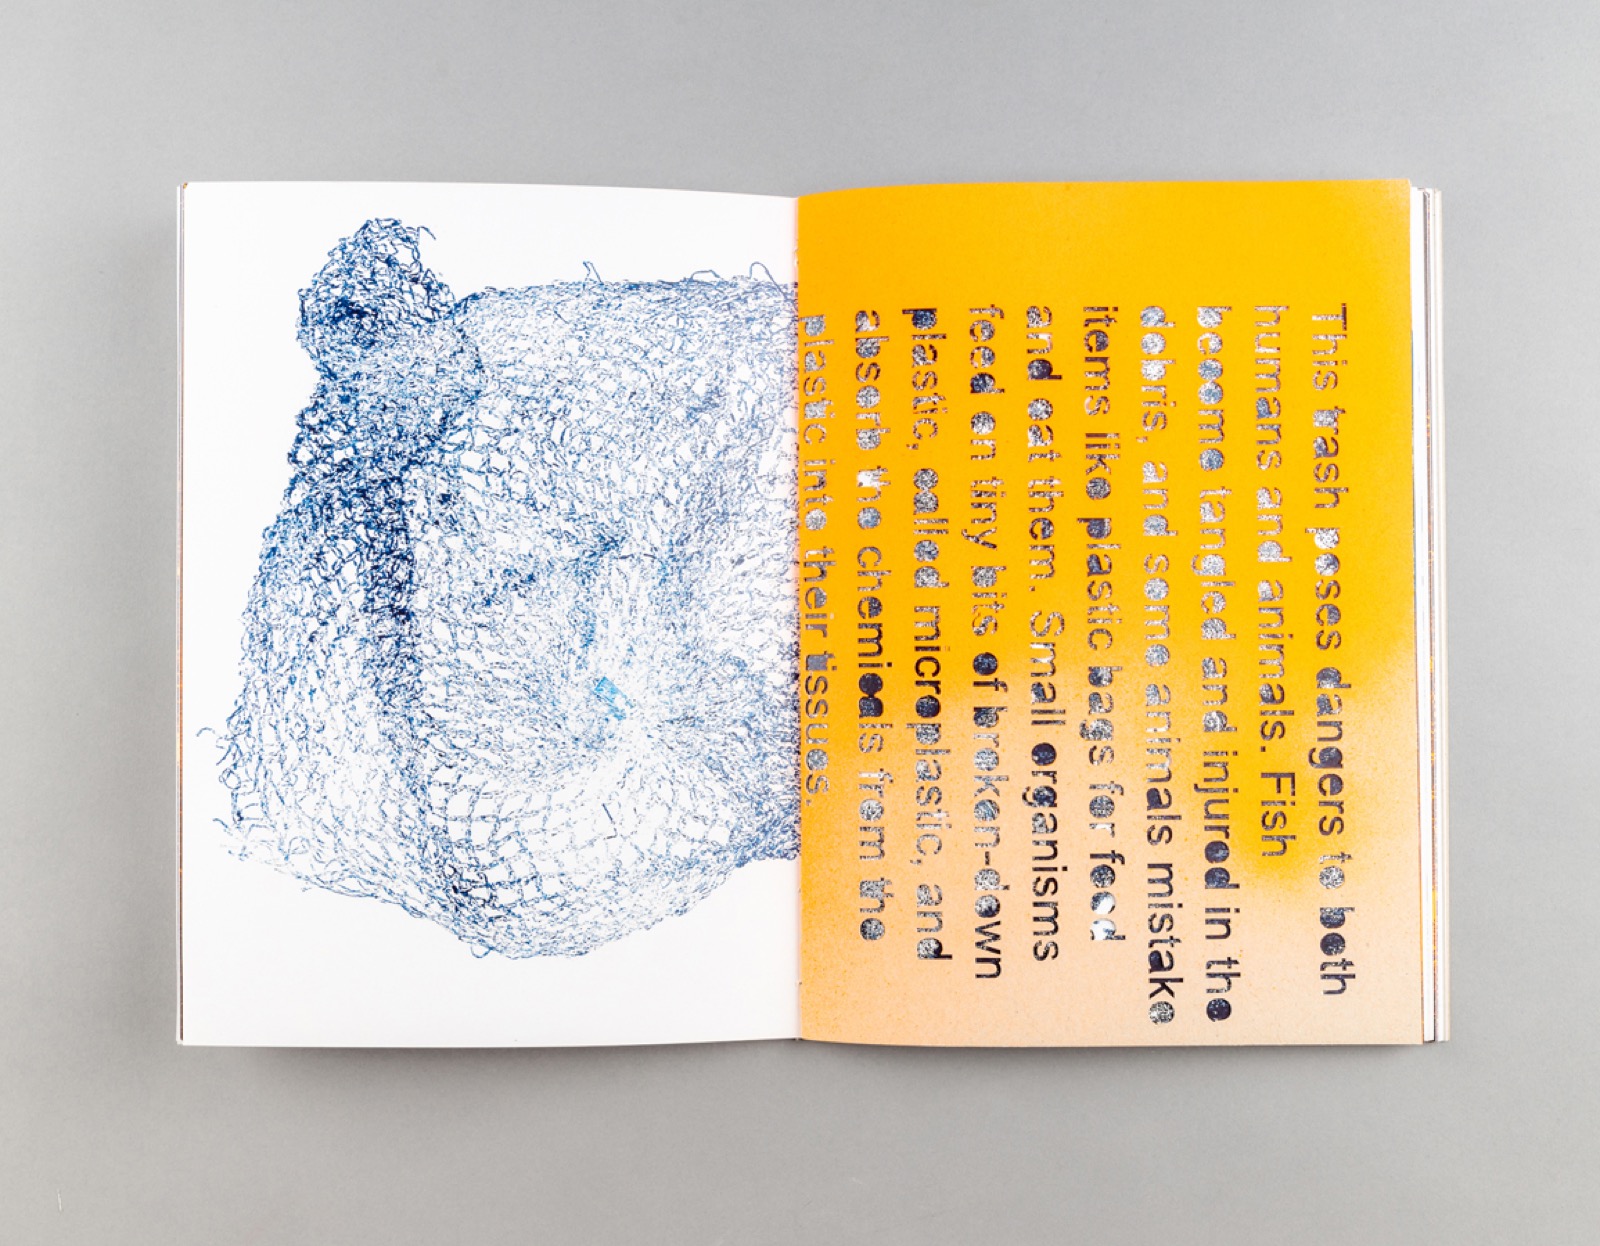 This trash poses dangers to both
humans and animals. Fish
become tangled and injured in the
debris, and some animals mistake
items like plastic bags for food
and eat them. Small organisms
feed on tiny bits of broken-down
plastic, called microplastic, and
absorb the chemicals from the
plastic into their tissues.